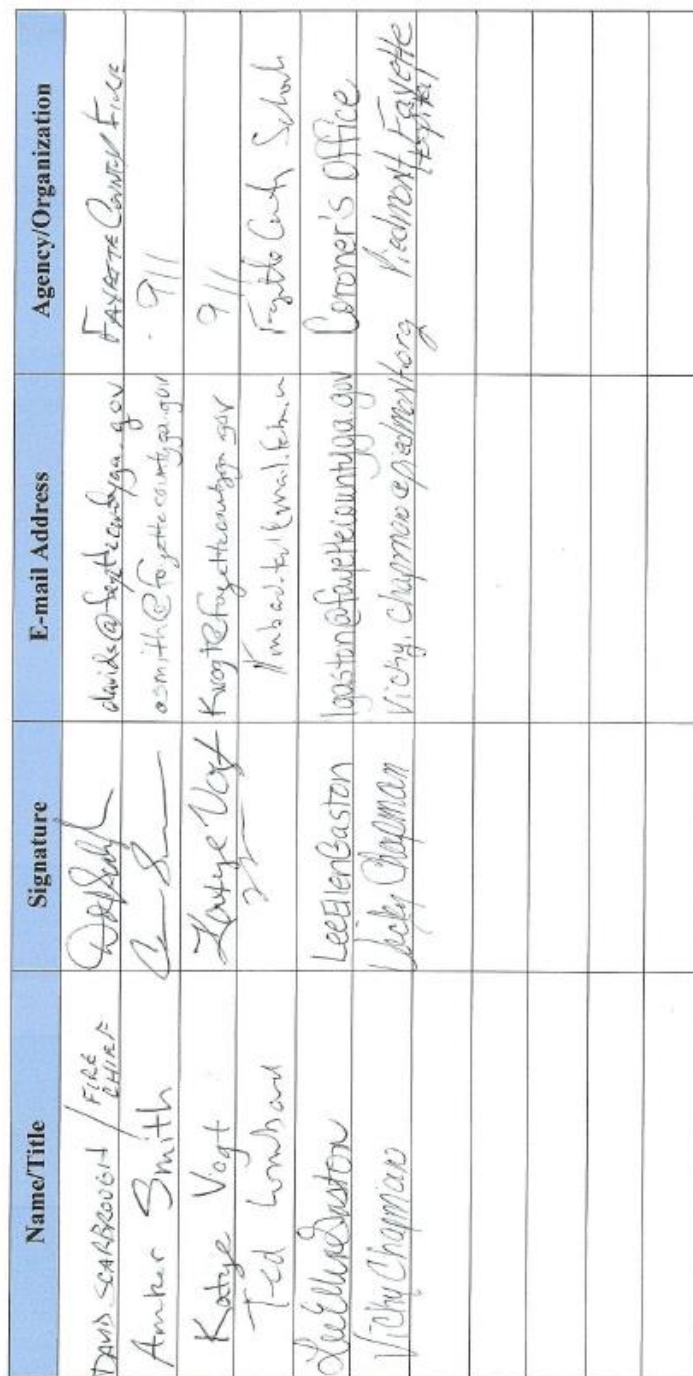 Name/Title Signature E-mail Address Agency/Organization
DAVID SCARBROUGH / FIRE CHIEF davids@fayettecountyga.gov FAYETTE COUNTY FIRE
Amber Smith asmith@fayettecountyga.gov 911
Katye Vogt Katye Vogt kvogt@fayettecountyga.gov 911
Ted Lombard Fayette County Schools
LeeEllenGaston LeeEllenGaston lgaston@fayettecountyga.gov Coroner's Office
Vicky Chapman Vicky Chapman Vicky.chapman@piedmont.org Piedmont Fayette Hospital